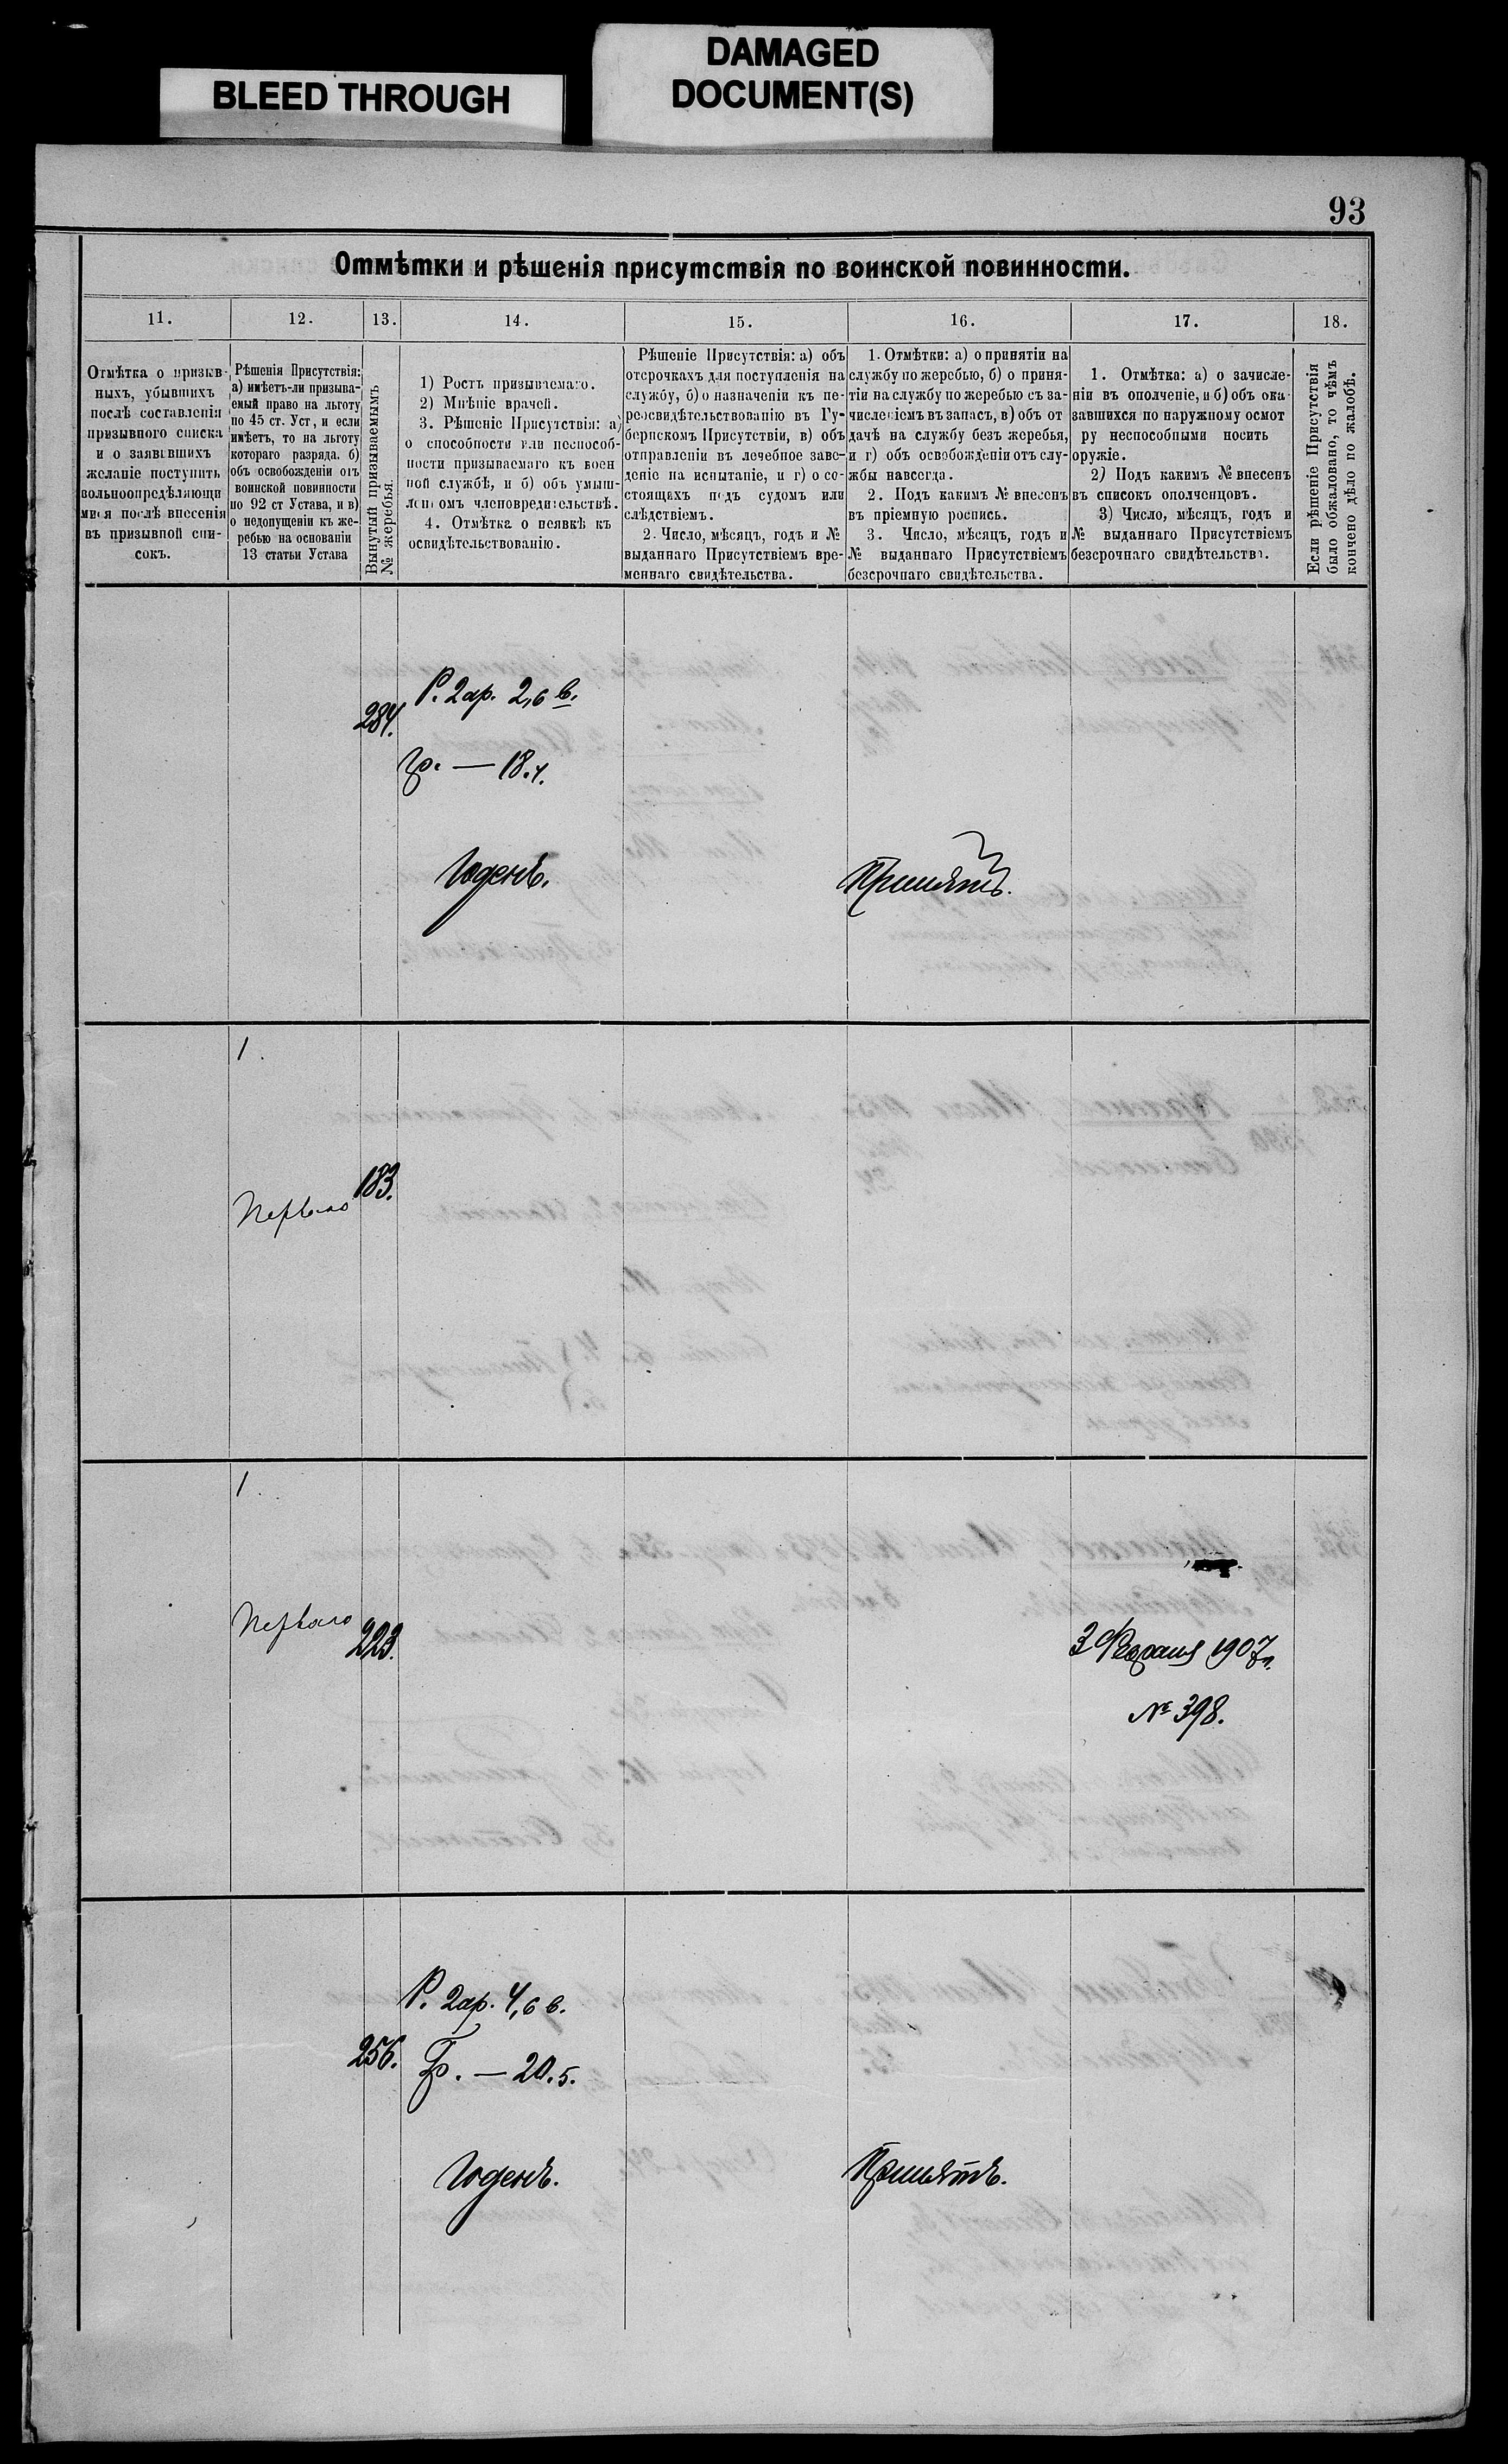 BLEED THROUGH
DAMAGED
DOCUMENT(S)
93
Отмѣтки и рѣшенія присутствія по воинской повинности.
11.
12.
13.
14.
15.
16.
17.
18.
Отмѣтка о призыв-
ныхъ, убывшихъ
послѣ составленія
призывного списка
и о заявившихъ
желаніе поступить
вольноопредѣляющи
мися послѣ внесенія
въ призывной спи-
сокъ.
Рѣшенія Присутствія:
а) имѣетъ-ли призыва-
емый право на льготу
по 45 ст. Уст, и если
имѣетъ, то на льготу
котораго разряда. б)
объ освобожденіи отъ
воинской повинности
по 92 ст Устава, и в)
о недопущеніи къ же-
ребью на основаніи
13 статьи Устава
Вынутый призываемымъ
№ жеребья.
1) Ростъ призываемаго.
2) Мнѣніе врачей.
3. Рѣшеніе Присутствія: а)
о способности или неспособ-
ности призываемаго къ воен
ной службѣ, и б) объ умыш-
леномъ членовредительствѣ.
4. Отмѣтка о неявкѣ къ
освидѣтельствованію.
Рѣшеніе Присутствія: а) объ
отсрочкахъ для поступленія на
службу, б) о назначеніи къ пе-
реосвидѣтельствованію въ Гу-
бернскомъ Присутствіи, в) объ
отправленіи въ лечебное заве-
деніе на испытаніе, и г) о со-
стоящихъ подъ судомъ или
слѣдствіемъ.
2. Число, мѣсяцъ, годъ и №
выданнаго Присутствіемъ вре-
меннаго свидѣтельства.
1. Отмѣтки: а) о принятіи на
службу по жеребью, б) о приня-
тіи на службу по жеребью съ за-
численіемъ въ запасъ, в) объ от
дачѣ на службу безъ жеребья,
и г) объ освобожденіи отъ слу-
жбы навсегда.
2. Подъ какимъ № внесенъ
въ пріемную роспись.
3. Число, мѣсяцъ, годъ и
№ выданнаго Присутствіемъ
безсрочнаго свидѣтельства.
1. Отмѣтка: а) о зачисле-
ніи въ ополченіе, и б) объ ока-
завшихся по наружному осмот
ру неспособными носить
оружіе.
2) Подъ какимъ № внесенъ
въ списокъ ополченцовъ.
3) Число, мѣсяцъ, годъ и
№ выданнаго Присутствіемъ
безсрочнаго свидѣтельства.
Если рѣшеніе Присутствія
было обжаловано, то чѣмъ
кончено дѣло по жалобѣ.
284.
Р. 2ар. 2,6 в.
гр. — 18.4.
Годенъ.
Принятъ.
1.
Перваго
183.
1.
Перваго
223.
3 Февраля 1907 г.
№ 398.
256.
Р. 2ар. 4,6 в.
Гр. — 20.5.
Годенъ.
Принятъ.